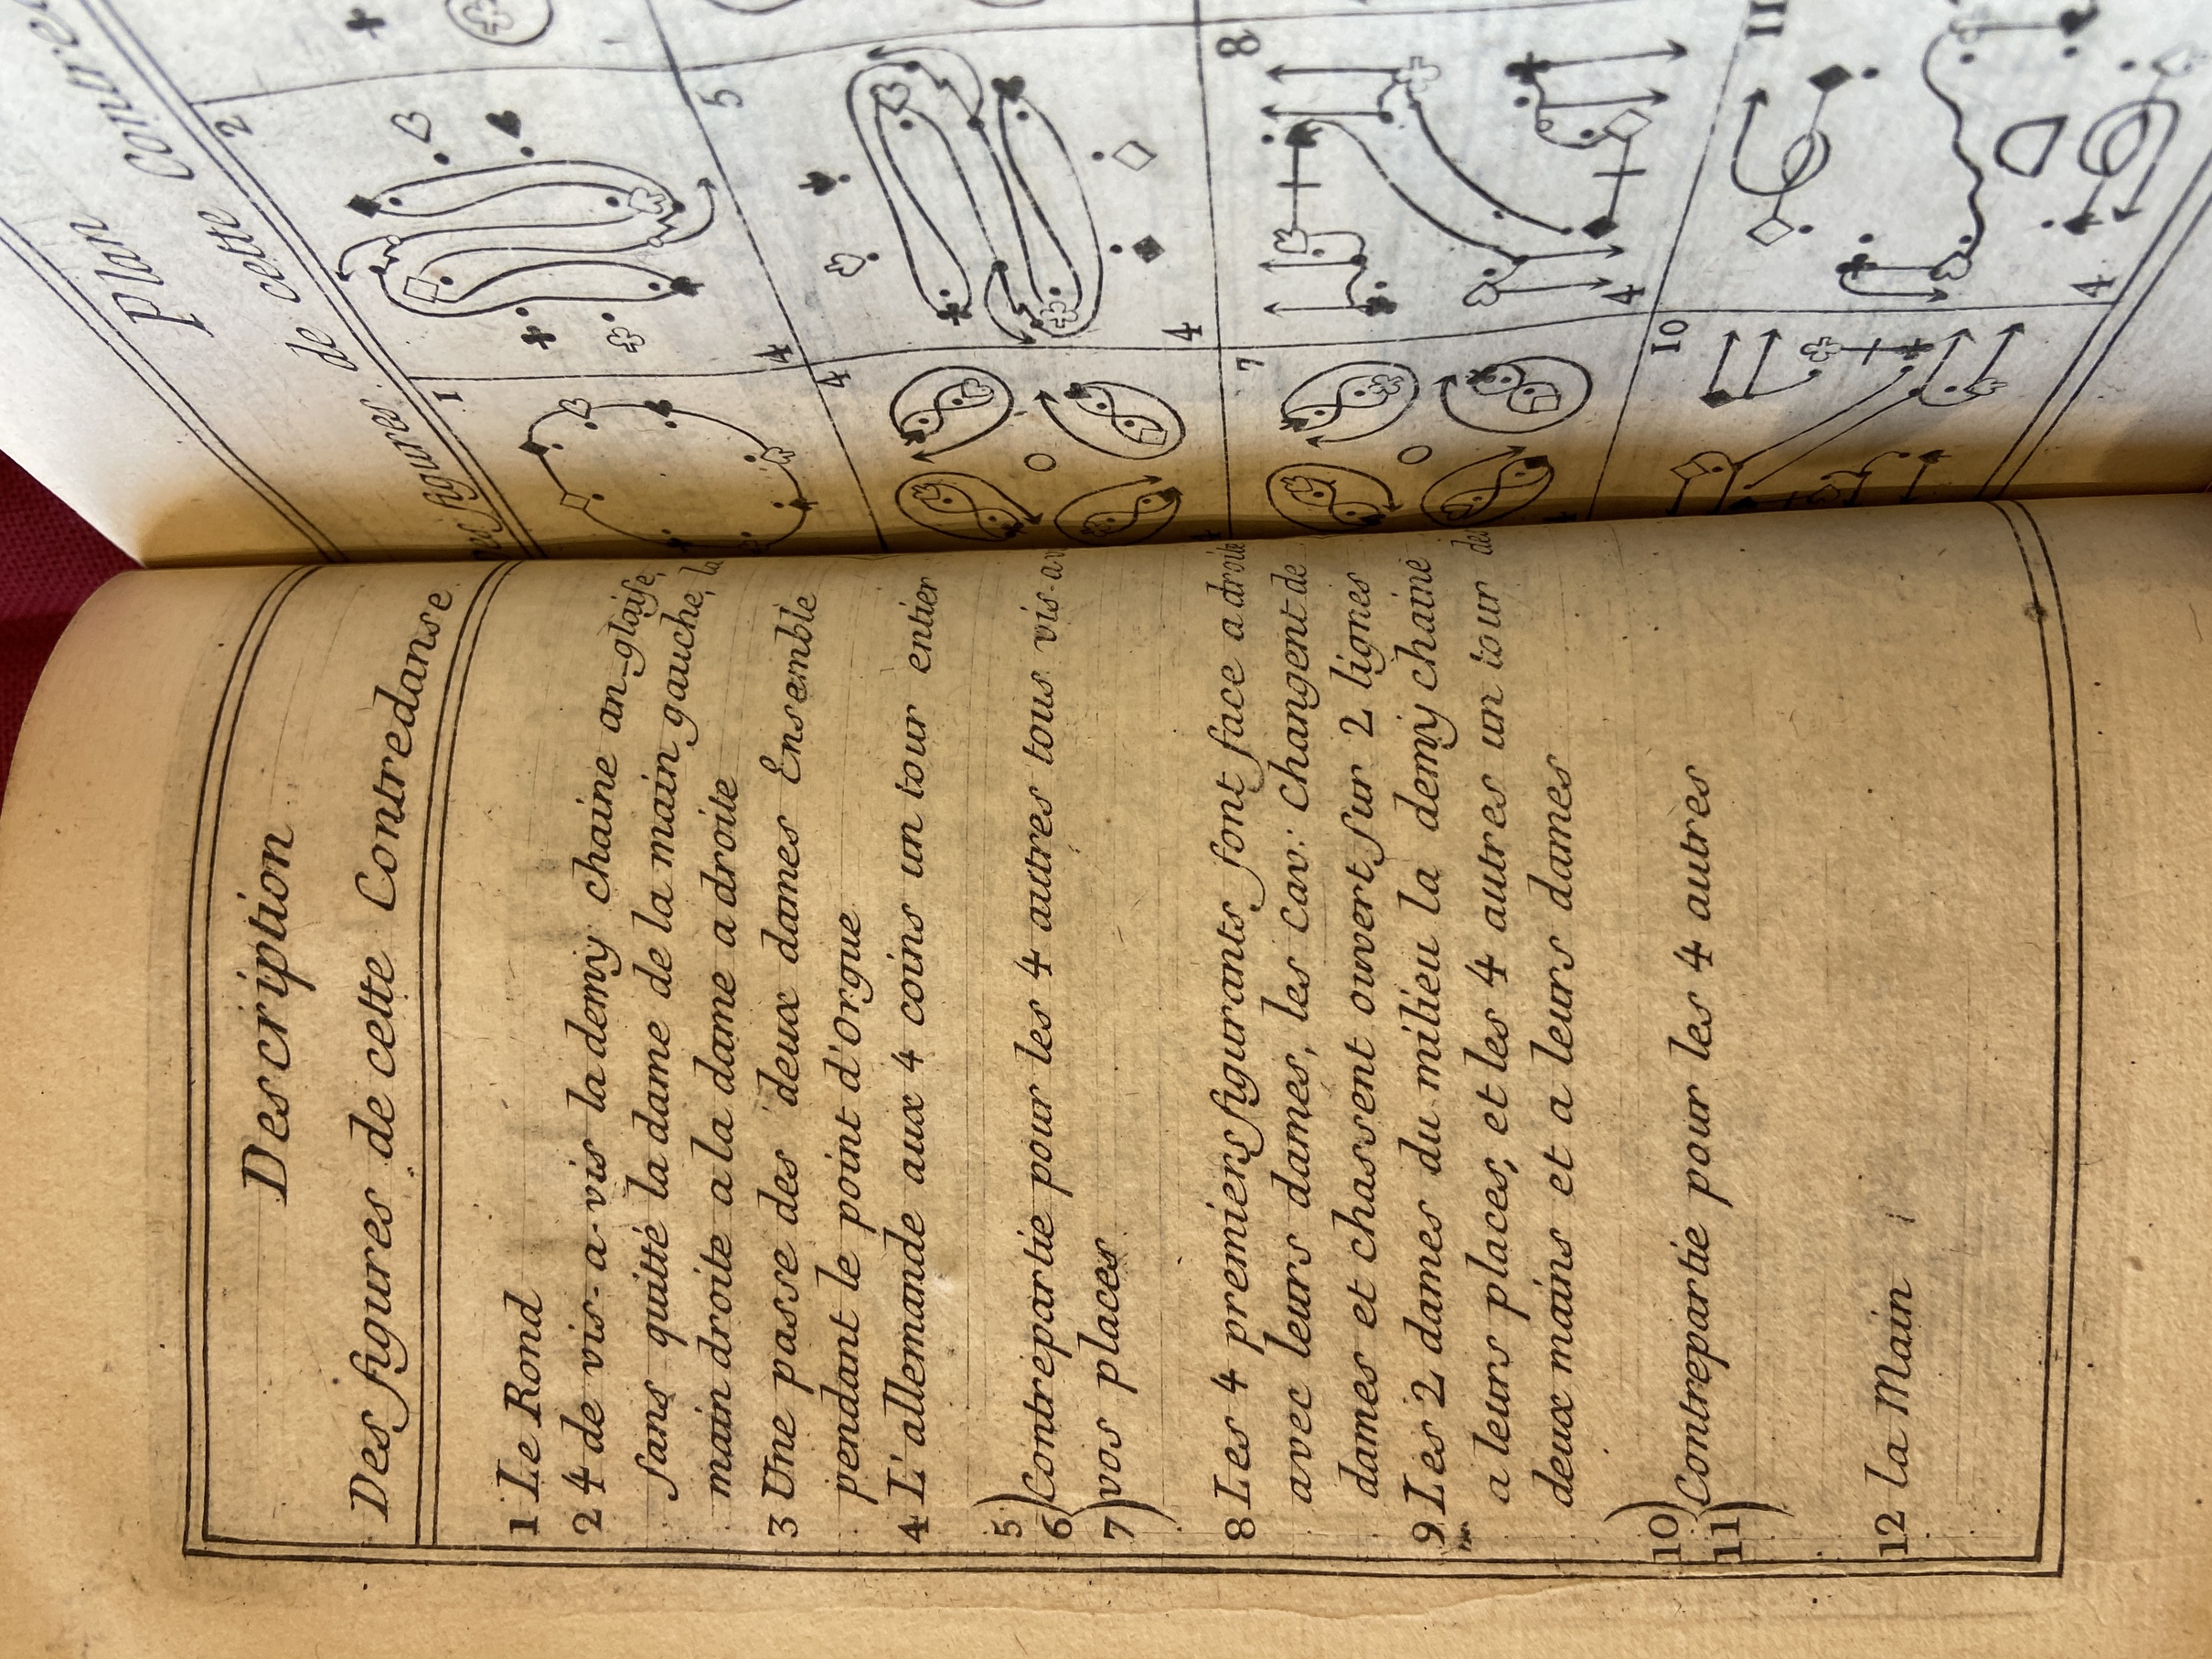 Description
Des figures de cette Contredanse
1 Le Rond
2 4 de vis-a-vis la demy chaine an-glaise,
sans quitté la dame de la main gauche, la
main droite a la dame a droite
3 Une passe des deux dames Ensemble
pendant le point d'Orgue
4 L'allemande aux 4 coins un tour entier
5
6 Contrepartie pour les 4 autres tous vis-a-
7 vos places
8 Les 4 premiers figurants font face a droite
avec leurs dames, les cav: changent de
dames et chassent ouvert sur 2 lignes
9 Les 2 dames du milieu la demy chaine
a leurs places, et les 4 autres un tour
deux mains et a leurs dames
10
11 Contrepartie pour les 4 autres
12 la Main
Plan
figures de cette
1
2
4
4
5
4
7
8
4
10
11
4